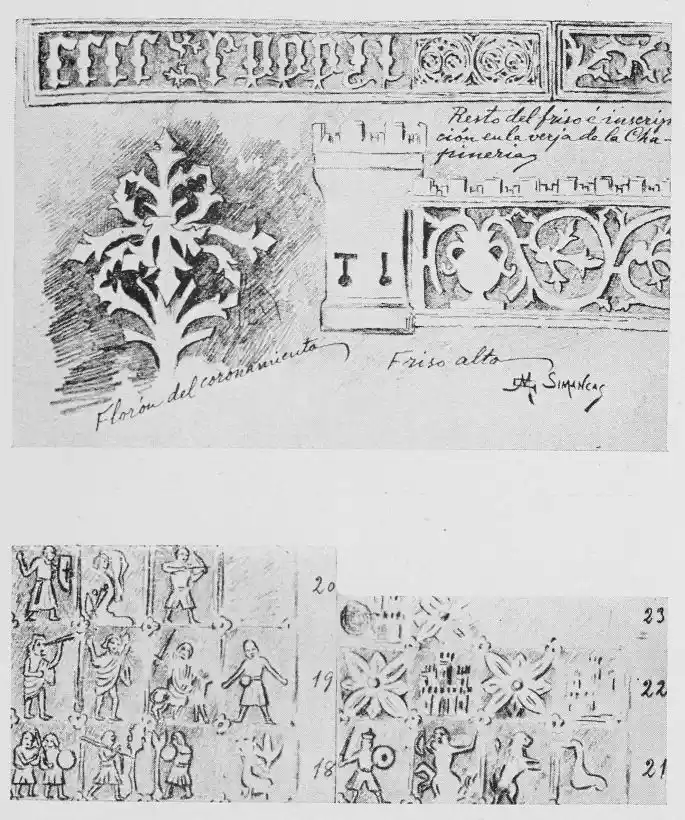 Resto del friso é inscrip
ción en la verja de la Cha-
pineria
Friso alto
Florón del coronamiento
SIMANCAS
20
19
18
23
22
21